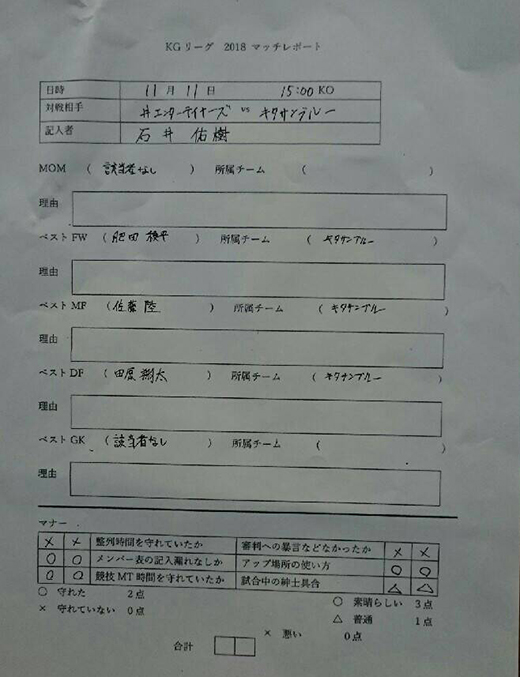 KGリーグ 2018 マッチレポート
日時 11月11日 15:00 KO
対戦相手 井エンターテイナーズ vs キタサンブルー
記入者 石井 佑樹
MOM ( 該当者なし ) 所属チーム ( )
理由
ベストFW ( 肥田 ) 所属チーム ( キタサンブルー )
理由
ベストMF ( 佐藤 陸 ) 所属チーム ( キタサンブルー )
理由
ベストDF ( 田原 翔太 ) 所属チーム ( キタサンブルー )
理由
ベストGK ( 該当者なし ) 所属チーム ( )
理由
マナー
× × 整列時間を守れていたか 審判への暴言などなかったか × ×
○ ○ メンバー表の記入漏れなしか アップ場所の使い方 ○ ○
○ ○ 競技MT時間を守れていたか 試合中の紳士具合 △ △
○ 守れた 2点 ○ 素晴らしい 3点
× 守れていない 0点 △ 普通 1点
合計 × 悪い 0点